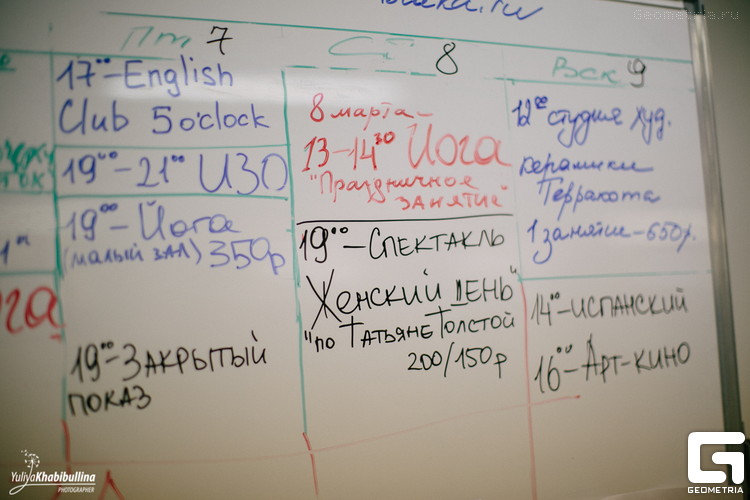 Geometria.ru
Пт 7
17⁰⁰-English
Club 5 o'clock
19⁰⁰-21⁰⁰ ИЗО
19⁰⁰-Йога
(малый зал) 350р
19⁰⁰-Закрытый
показ
Сб 8
8 марта-
13-14³⁰ Йога
"Праздничное
занятие"
19⁰⁰-Спектакль
Женский день"
"по Татьяне Толстой
200/150р
Вск 9
12⁰⁰ студия худ.
керамики
Терракота
1 занятие-650р.
14⁰⁰-испанский
16⁰⁰-Арт-кино
YuliyaKhabibullina
PHOTOGRAPHER
GEOMETRIA